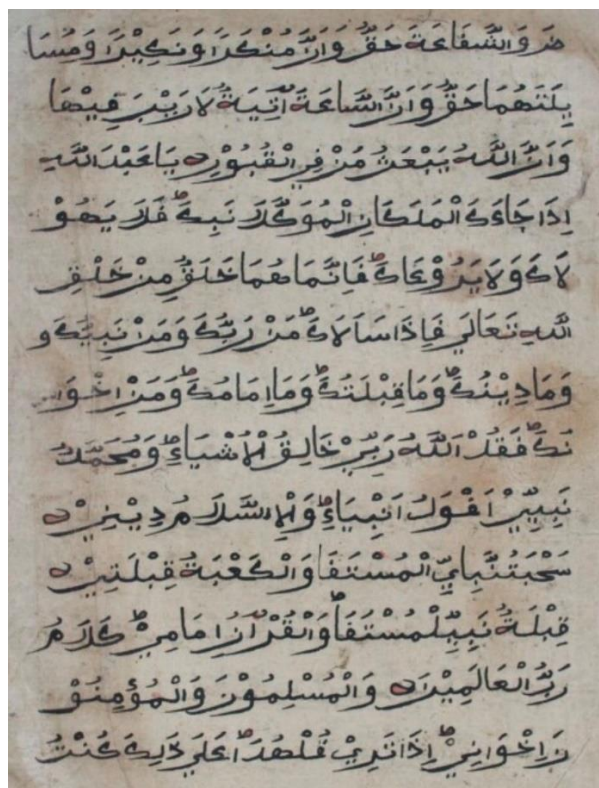 ضَرَ وَالشَّفَاعَةَ حَقٌّ وَاَنَّ مُنْكَرَا وَنَكِيْرَا وَمُسَا
يِلَتَهُمَا حَقٌّ وَاَنَّ السَّاعَةَ اٰتِيَةٌ لَا رَيْبَ فِيْهَا
وَاَنَّ اللّٰهَ يَبْعَثُ مَنْ فِي الْقُبُوْرِ يَا عَبْدَ اللّٰهِ
اِذَا جَاءَكَ الْمَلَكَانِ الْمُوَكَّلَا نَبِكَ فَلَا يَهُوْ
لَاكَ وَلَا يَرُوْعَاكَ فَاِنَّمَا هُمَا خَلَقٌ مِنْ خَلْقِ
اللّٰهِ تَعَالَي فَاِذَا سَاَلَاكَ مَنْ رَبُّكَ وَمَنْ نَبِيُّكَ وَ
وَمَا دِيْنُكَ وَمَا قِبْلَتُكَ وَمَا اِمَامُكَ وَمَنْ اِخْوَا
نُكَ فَقُدْ اَللّٰهُ رَبِّيْ خَالِقُ الْاَشْيَاءِ وَمُحَمَّدٌ
نَبِيِّيْ اَفْوَلُ اَنْبِيَاءِ وَالْاِسَّلَامُ دِيْنِيْ
سَحْبَتُنَّبَايِّ الْمُسْتَفَا وَالْكَعْبَةُ قِبْلَتِيْ
قِبْلَةُ نَبِيِّلْمُسْتَفَا وَالْقُرْآنُ اِمَامِيْ كَلَامُ
رَبُّ الْعَالَمِيْنَ وَالْمُسْلِمُوْنَ وَالْمُؤْمِنُوْ
نَ اِخْوَانِيْ اِذَا تَرِيْ قُلْهٰذَا عَلَي ذٰلِكَ كُنْتُ